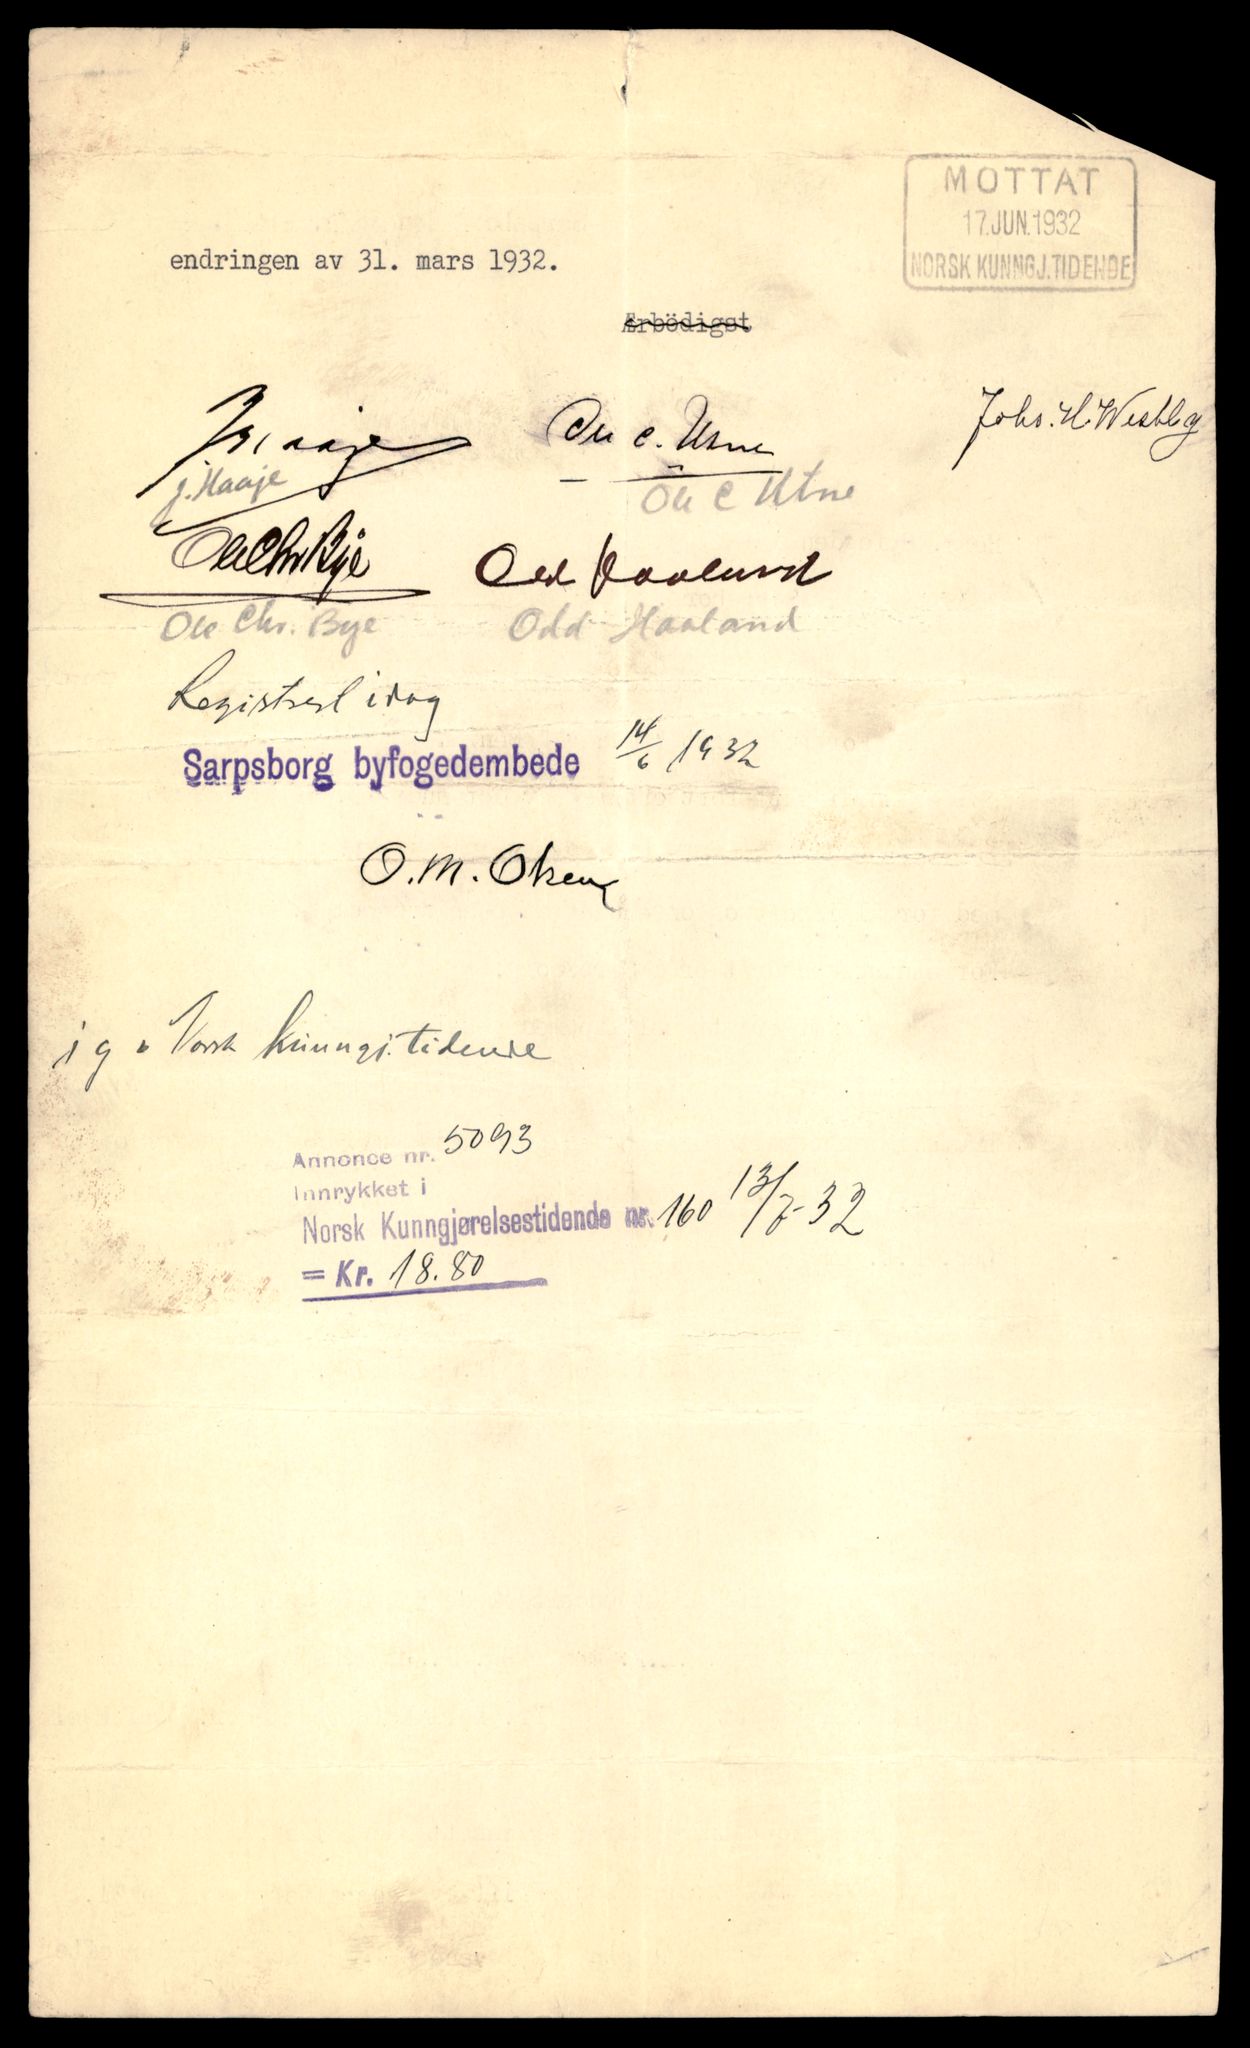 MOTTAT
17.JUN.1932
NORSK KUNNGJ.TIDENDE
endringen av 31. mars 1932.
Ærbödigst
J. Haaje Ole C. Utne Johs. H. Westby
J. Haaje Ole C Utne
Ole Chr Bye Odd Haaland
Ole Chr. Bye Odd Haaland
Registrert idag
Sarpsborg byfogedembede 14/6 1932
O. M. Olsen
Norsk Kunngj. tidende
Annonce nr. 5093
Innrykket i
Norsk Kunngjørelsestidende nr. 160 13/7-32
= Kr. 18.80